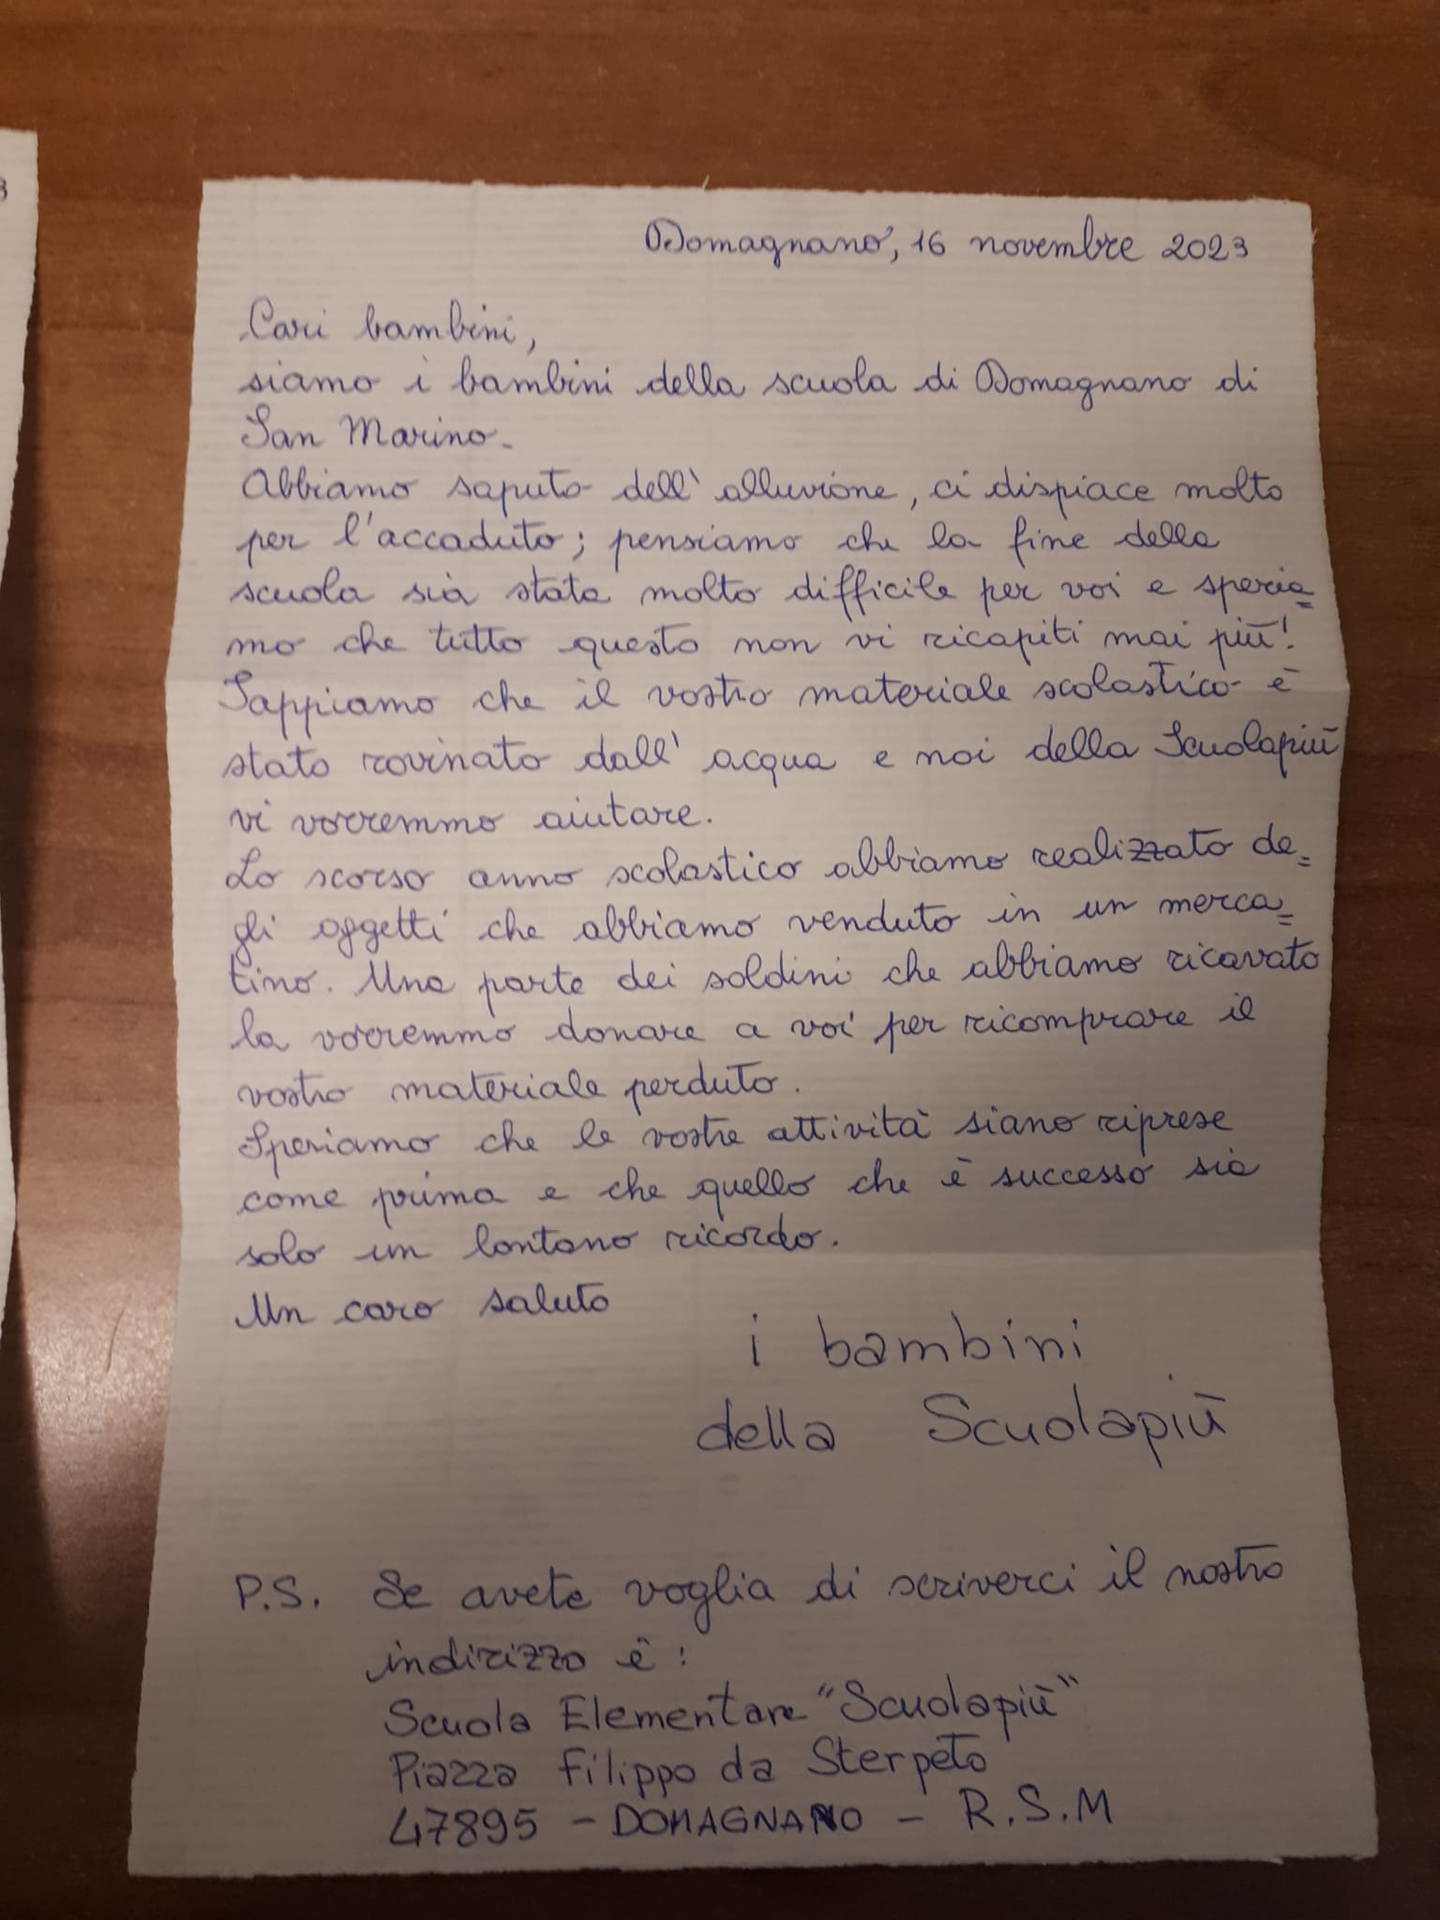 3
Domagnano, 16 novembre 2023
Cari bambini,
siamo i bambini della scuola di Domagnano di
San Marino.
Abbiamo saputo dell'alluvione, ci dispiace molto
per l'accaduto; pensiamo che la fine della
scuola sia stata molto difficile per voi e speria=
mo che tutto questo non vi ricapiti mai più!
Sappiamo che il vostro materiale scolastico è
stato rovinato dall'acqua e noi della Scuolapiù
vi vorremmo aiutare.
Lo scorso anno scolastico abbiamo realizzato de=
gli oggetti che abbiamo venduto in un merca=
tino. Una parte dei soldini che abbiamo ricavato
la vorremmo donare a voi per ricomprare il
vostro materiale perduto.
Speriamo che le vostre attività siano riprese
come prima e che quello che è successo sia
solo un lontano ricordo.
Un caro saluto
i bambini
della Scuolapiù
P.S. Se avete voglia di scriverci il nostro
indirizzo è:
Scuola Elementare "Scuolapiù"
Piazza Filippo da Sterpeto
47895 - DOMAGNANO - R.S.M